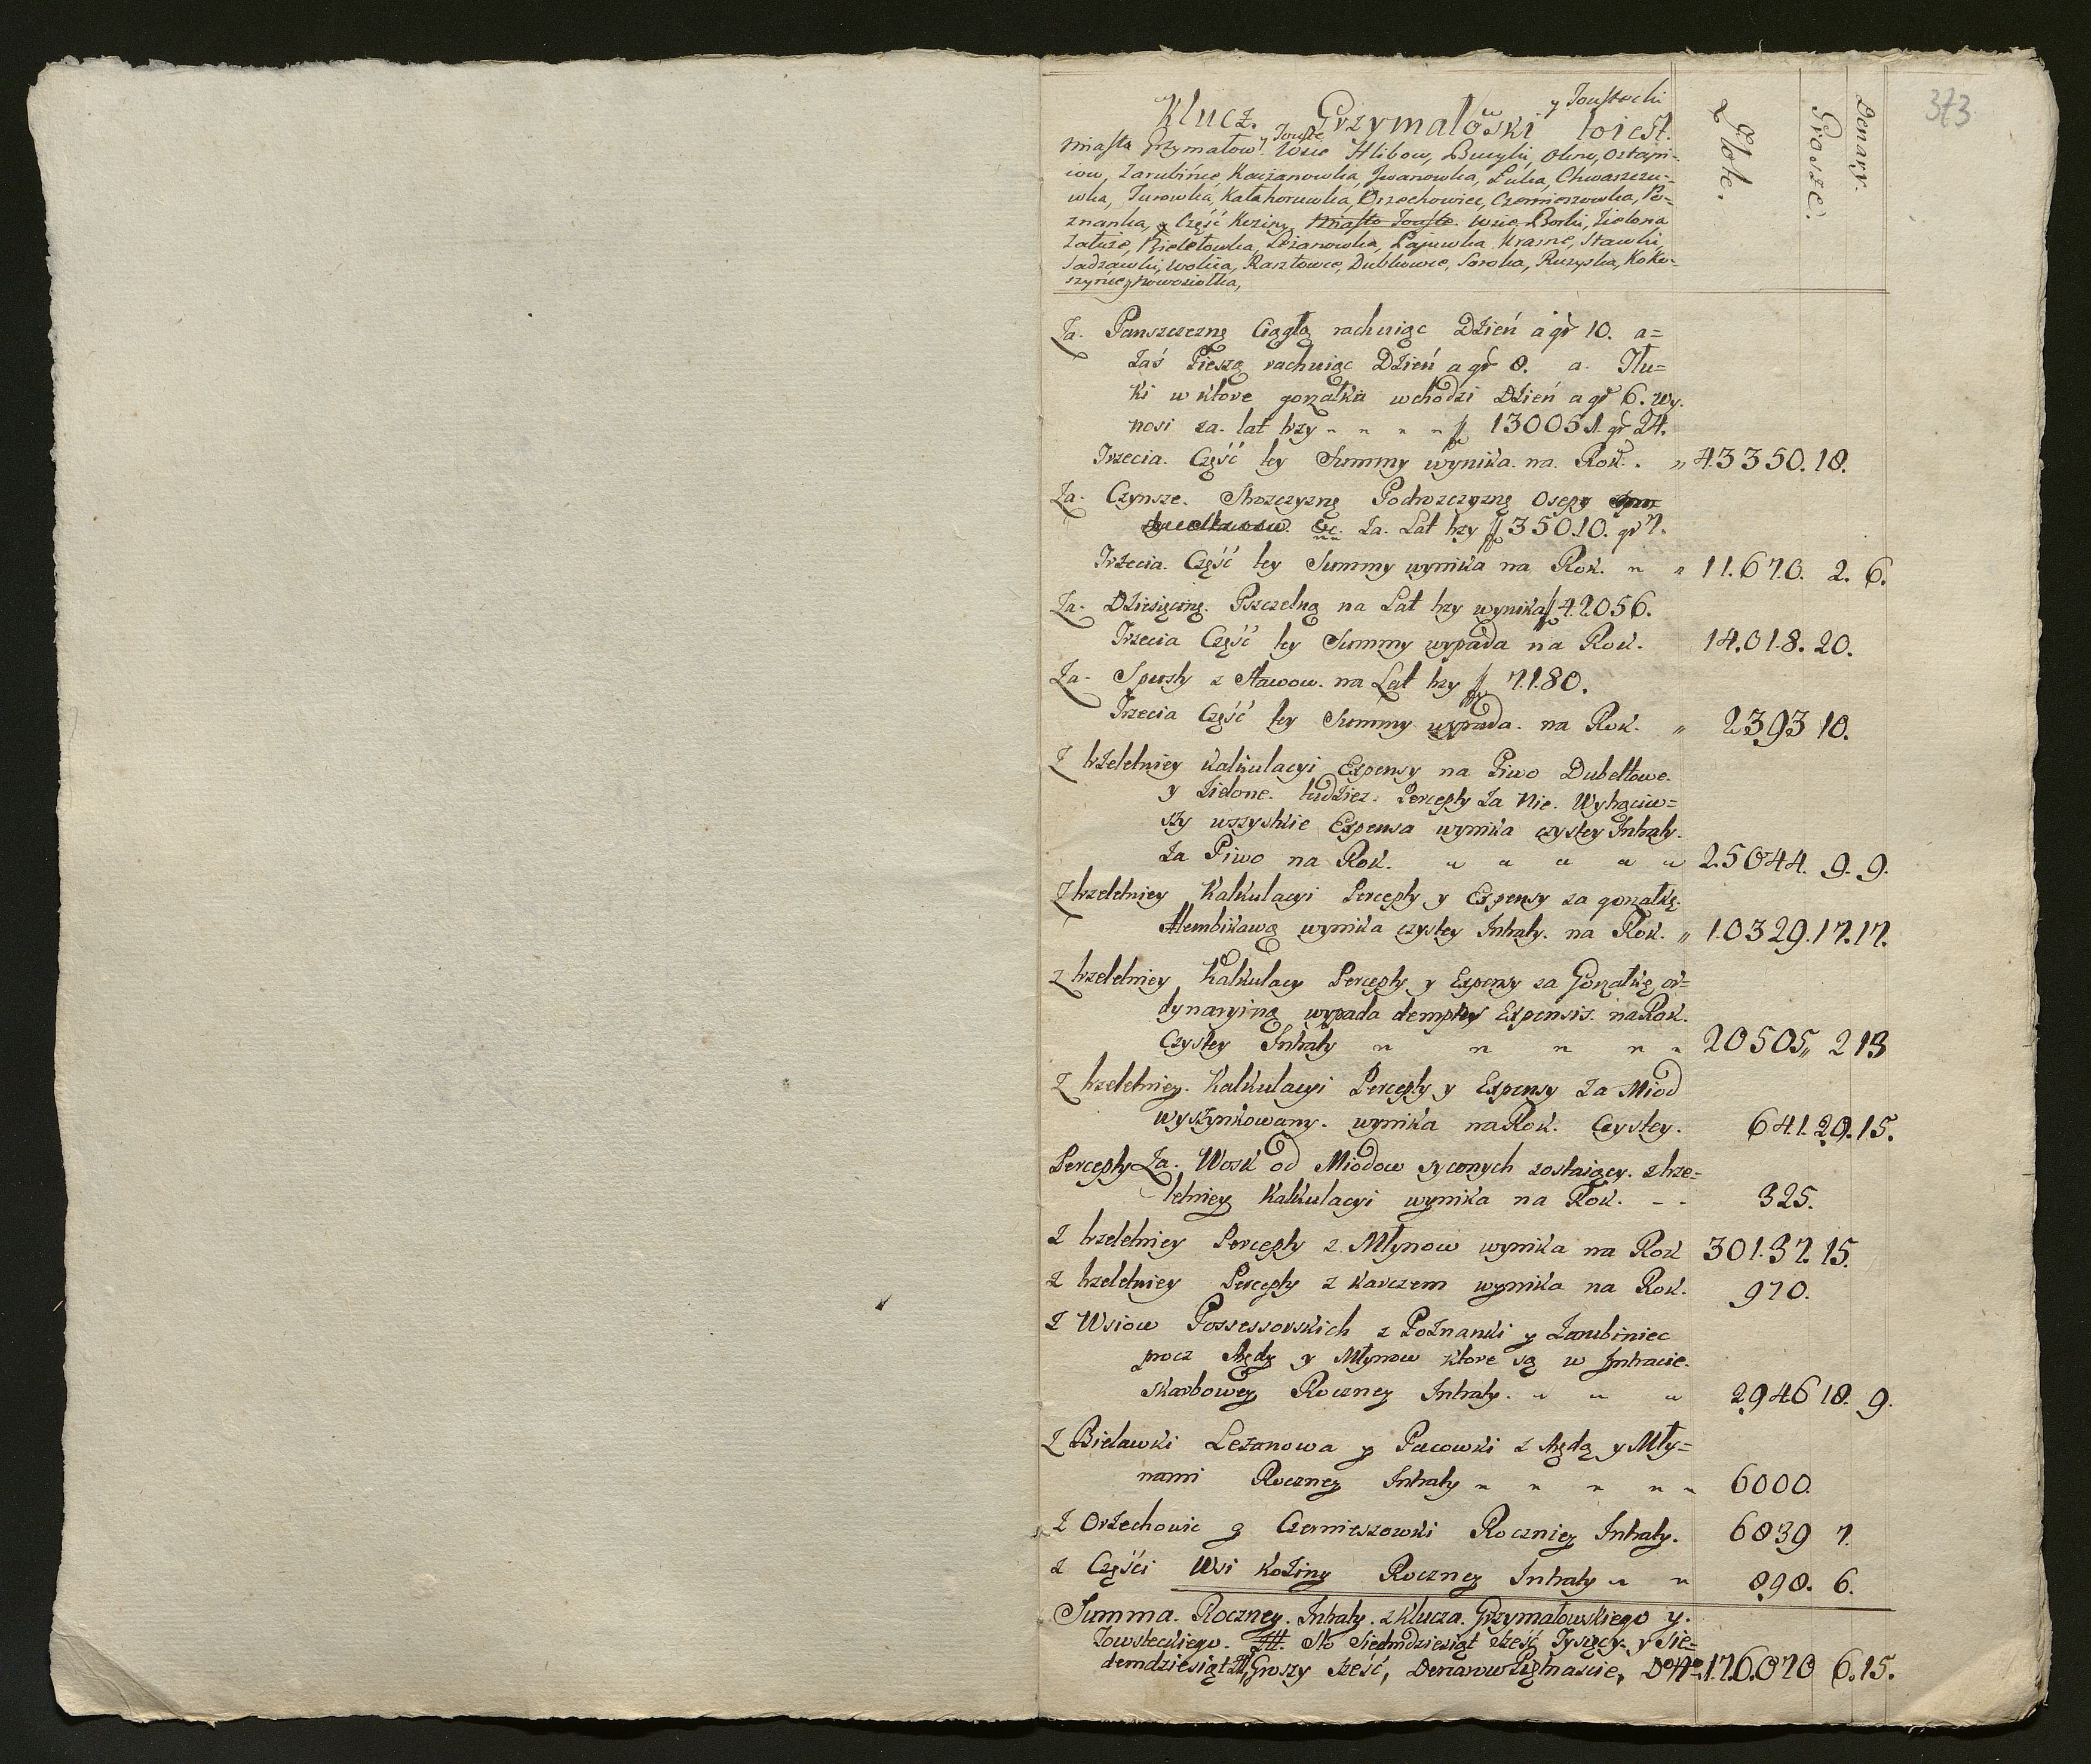 373.
Złote. Grosze. Denary.
y Toustecki
Klucz. Grzymałowski toiest.
y Touste
Miasta Grzymałow Wsie Hlibow, Bucyki, Olno, Ostapi-
iow, Zarubińce, Kaczanowka, Jwanowka, Łuka, Chwaszczu-
wka, Turowka, Kałahorowka, Orzechowice, Czernieszowka, Po-
znanka, y Część Koziny Miasto Touste Wsie Borki, Zielona
Załuże, Bielełowka, Leżanowka, Pajuwka Krasne, Stawki,
Sadzawki, Wolica, Rasztowce, Dubkowce, Soroka, Ruzyska, Koko-
szyńce y Nowosiołka,
Za. Panszczeznę Ciągłą rachuiąc Dzień à gr 10. a=
Zaś Pieszą rachuiąc Dzień a gr 8. a. Tłu=
ki w ktore gorzałka wchodzi Dzień a gr 6. wy.
nosi za. lat trzy " " " " fl 130051. gr 24.
Trzecia. Część tey Summy wynika. na. Rok. . " 43350. 18.
Za. Czynsze. Stroszczyznę Podrozczyznę Osepy
&c. Za. Lat trzy fl 35010. gr 7.
Trzecia. Część tey Summy wynika na Rok. " " 11.670. 2. 6.
Za. Dziesięcinę. Pszczelną na Lat trzy wynika fl 42056.
Trzecia Część tey Summy wypada na Rok. 14.018. 20.
Za. Spusty z Stawow. na Lat trzy fl 7180.
Trzecia Część tey Summy wypada. na Rok. " 2393 10.
Z trzeletniey Kalkulacyi Expensy na Piwo Dubeltowe.
y Zielone. tudziez. Percepty Za Nie. Wytrąciw=
szy wszystkie Expensa wynika czystey Intraty.
Za Piwo na Rok. " " " " " 25044. 9. 9.
Z trzeletniey Kalkulacyi Percepty y Expensy za gorzałkę.
Alembikawą wynika czystey Intraty. na Rok. " 10329. 17. 17.
z trzeletniey Kalkulacy Percepty y Expensy za Gorzałkę or=
dynaryiną wypada demptis Expensis. na Rok.
Czystey Intraty " " " " " 20505" 2 13
Z trzeletniey. Kalkulacyi Percepty y Expensy Za Miod
wyszynkowany. wynika na Rok. Czystey. 641. 20. 15.
Percepty Za. Wosk od Miodow syconych zostaiący. z trze=
letniey Kalkulacyi wynika na Rok. - - 325.
Z trzeletniey Percepty z Młynow wynika na Rok 30137. 15.
z trzeletniey Percepty z Karczem wynika na Rok. 970.
Z Wsiow Possessorskich z Poznanki y Zarubiniec
procz Arędy y Młynow ktore są w Jntracie.
Skarbowey Roczney Intraty. " " " 2946 18. 9.
Z Bielawki Leżanowa y Pacowki z Arędą y Mły=
nami Roczney Intraty " " " " " 6000.
Z Orzechowic y Czernieszowki Roczniey Intraty. 6839 7.
z Części Wsi Koziny Roczney Intraty " " 898. 6.
Summa. Roczney. Intraty. z Klucza. Grzymałowskiego y.
Towsteckiego. Sto Siedmdziesiąt sześć Tysięcy. y Sie=
demdziesiąt Zł, Groszy sześć, Denarow Piętnascie, 176.070 6. 15.